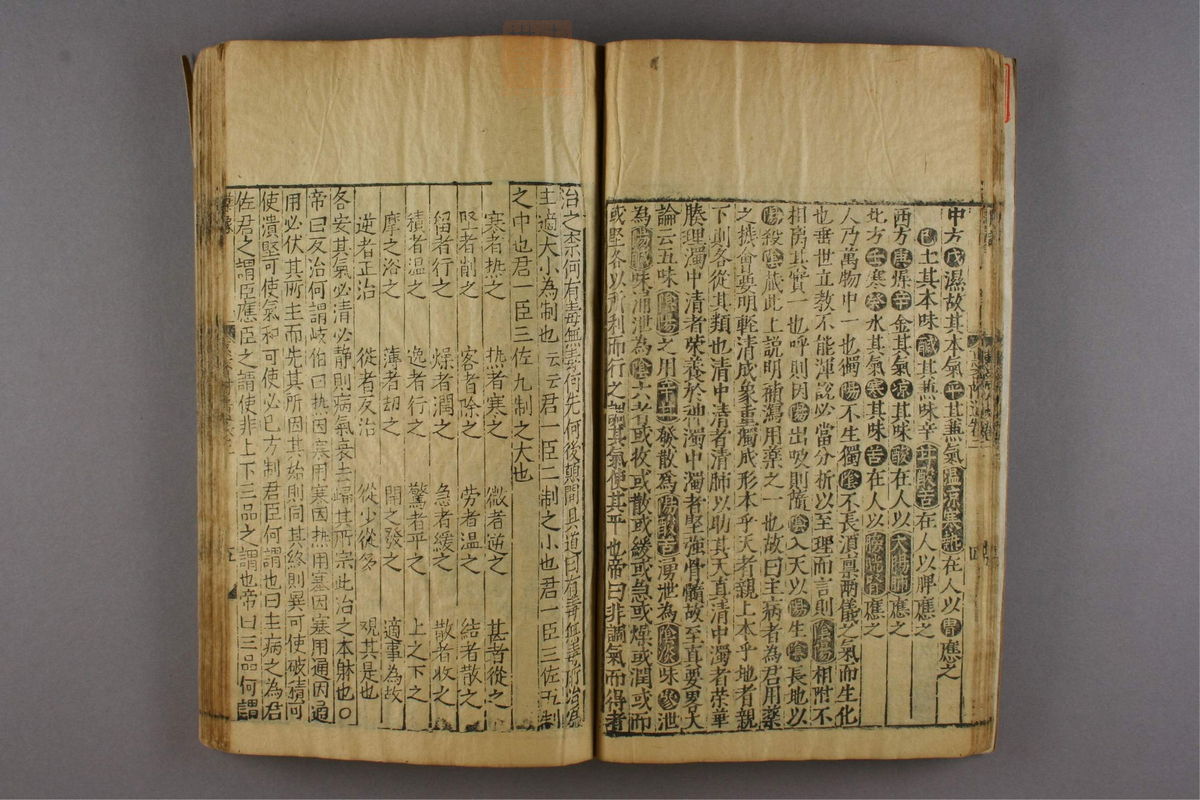 中方戊濕故其本氣平其兼氣溫凉寒熱在人以胃應之
己土其本味鹹其兼味辛甘酸苦在人以脾應之
西方庚燥辛金其氣凉其味酸在人以大腸肺應之
北方壬寒癸水其氣寒其味苦在人以膀胱腎應之
人乃萬物中一也獨陽不生獨陰不長須稟兩儀之氣而生化
也垂世立教不能渾說必當分析以至理而言則陰陽相附不
相离其實一也呼則因陽出吸則隨陰入天以陽生陰長地以
陽殺陰藏此上說明補瀉用藥之一也故曰主病者為君用藥
之機會要明輕清成象重濁成形本乎天者親上本乎地者親
下則各從其類也清中清者清肺以助其天真清中濁者荣華
腠理濁中清者荣養於神濁中濁者堅強骨髓故至真要畧大
論云五味陰陽之用辛甘發散為陽酸苦湧泄為陰淡味滲泄
為陽鹹味涌泄為陰六者或收或散或緩或急或燥或潤或而
或堅各以所利而行之調其氣使其平也帝曰非調氣而得者
治之柰何有毒無毒何先何後願聞其道曰有毒無毒所治為
主適大小為制也云云君一臣二制之小也君一臣三佐五制
之中也君一臣三佐九制之大也
寒者热之 热者寒之 微者逆之 甚者從之
堅者削之 客者除之 劳者溫之 結者散之
留者行之 燥者潤之 急者緩之 散者收之
積者溫之 逸者行之 驚者平之 上之下之
摩之浴之 薄者刼之 開之發之 適事為故
逆者正治 從者反治 從少從多 观其是也
各安其氣必清必静則病氣衰去歸其所宗此治之本躰也〇
帝曰反治何謂岐伯曰热因寒用寒因热用塞因塞用通因通
用必伏其所主而先其所因其始則同其終則異可使破積可
使潰堅可使氣和可使必已方制君臣何謂也曰主病之為君
佐君之謂臣應臣之謂使非上下三品之謂也帝曰三品何謂